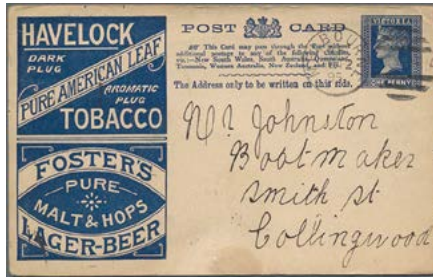 HAVELOCK
DARK
PLUG
PURE AMERICAN LEAF
AROMATIC
PLUG
TOBACCO
FOSTER'S
PURE
MALT & HOPS
LAGER-BEER
POST CARD
This Card may pass through the Post without
additional postage to any of the following colonies,
viz:—New South Wales, South Australia, Queensland,
Tasmania, Western Australia, New Zealand, and Fiji.
The Address only to be written on this side.
VICTORIA
ONE PENNY
Johnston
Boot maker
Smith st
Collingwood